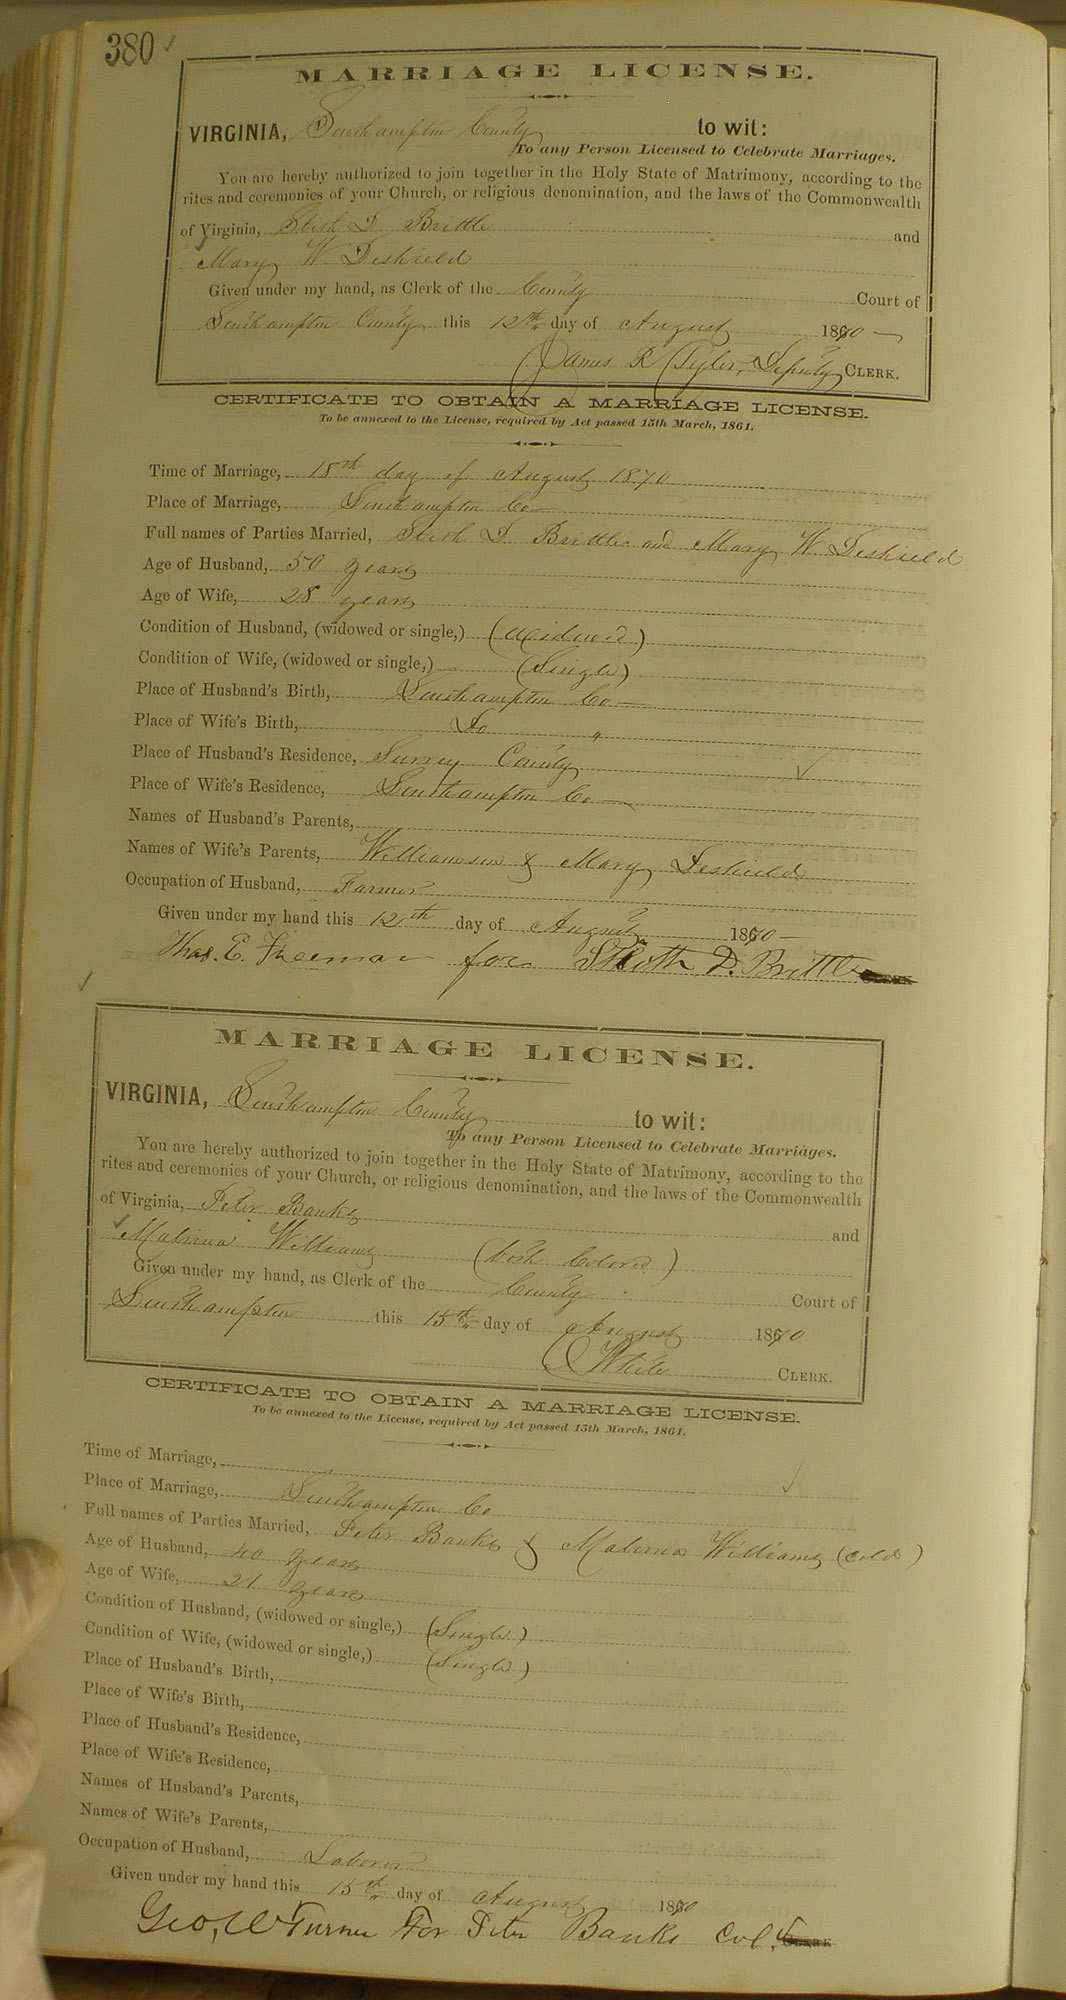 380
MARRIAGE LICENSE.
VIRGINIA, Southampton County to wit:
To any Person Licensed to Celebrate Marriages.
You are hereby authorized to join together in the Holy State of Matrimony, according to the
rites and ceremonies of your Church, or religious denomination, and the laws of the Commonwealth
of Virginia, Sloth D Brittle and
Mary W. Deshield
Given under my hand, as Clerk of the County Court of
Southampton County this 12th day of August 1870
James R Tyler, Deputy CLERK.
CERTIFICATE TO OBTAIN A MARRIAGE LICENSE.
To be annexed to the License, required by Act passed 15th March, 1861.
Time of Marriage, 18th day of August 1870
Place of Marriage, Southampton Co
Full names of Parties Married, D. Brittle and Mary W. Deshield
Age of Husband, 50 years
Age of Wife, 28 years
Condition of Husband, (widowed or single,) (Widowed)
Condition of Wife, (widowed or single,) (Single)
Place of Husband's Birth, Southampton Co
Place of Wife's Birth, Do "
Place of Husband's Residence, Surrey County
Place of Wife's Residence, Southampton Co
Names of Husband's Parents,
Names of Wife's Parents, Williamson & Mary Deshield
Occupation of Husband, Farmer
Given under my hand this 12th day of August 1870
Thos. E. Freeman for D. Brittle CLERK
MARRIAGE LICENSE.
VIRGINIA, Southampton County to wit:
To any Person Licensed to Celebrate Marriages.
You are hereby authorized to join together in the Holy State of Matrimony, according to the
rites and ceremonies of your Church, or religious denomination, and the laws of the Commonwealth
of Virginia, Peter Banks and
Malvina Williams (both Colored)
Given under my hand, as Clerk of the County Court of
Southampton this 15th day of August 1870
White CLERK.
CERTIFICATE TO OBTAIN A MARRIAGE LICENSE.
To be annexed to the License, required by Act passed 15th March, 1861.
Time of Marriage,
Place of Marriage, Southampton Co
Full names of Parties Married, Peter Banks & Malvina Williams (cold)
Age of Husband, 40 years
Age of Wife, 21 years
Condition of Husband, (widowed or single,) (Single)
Condition of Wife, (widowed or single,) (Single)
Place of Husband's Birth,
Place of Wife's Birth,
Place of Husband's Residence,
Place of Wife's Residence,
Names of Husband's Parents,
Names of Wife's Parents,
Occupation of Husband, Laborer
Given under my hand this 15th day of August 1870
Geo, W Turner For Peter Banks Col. CLERK